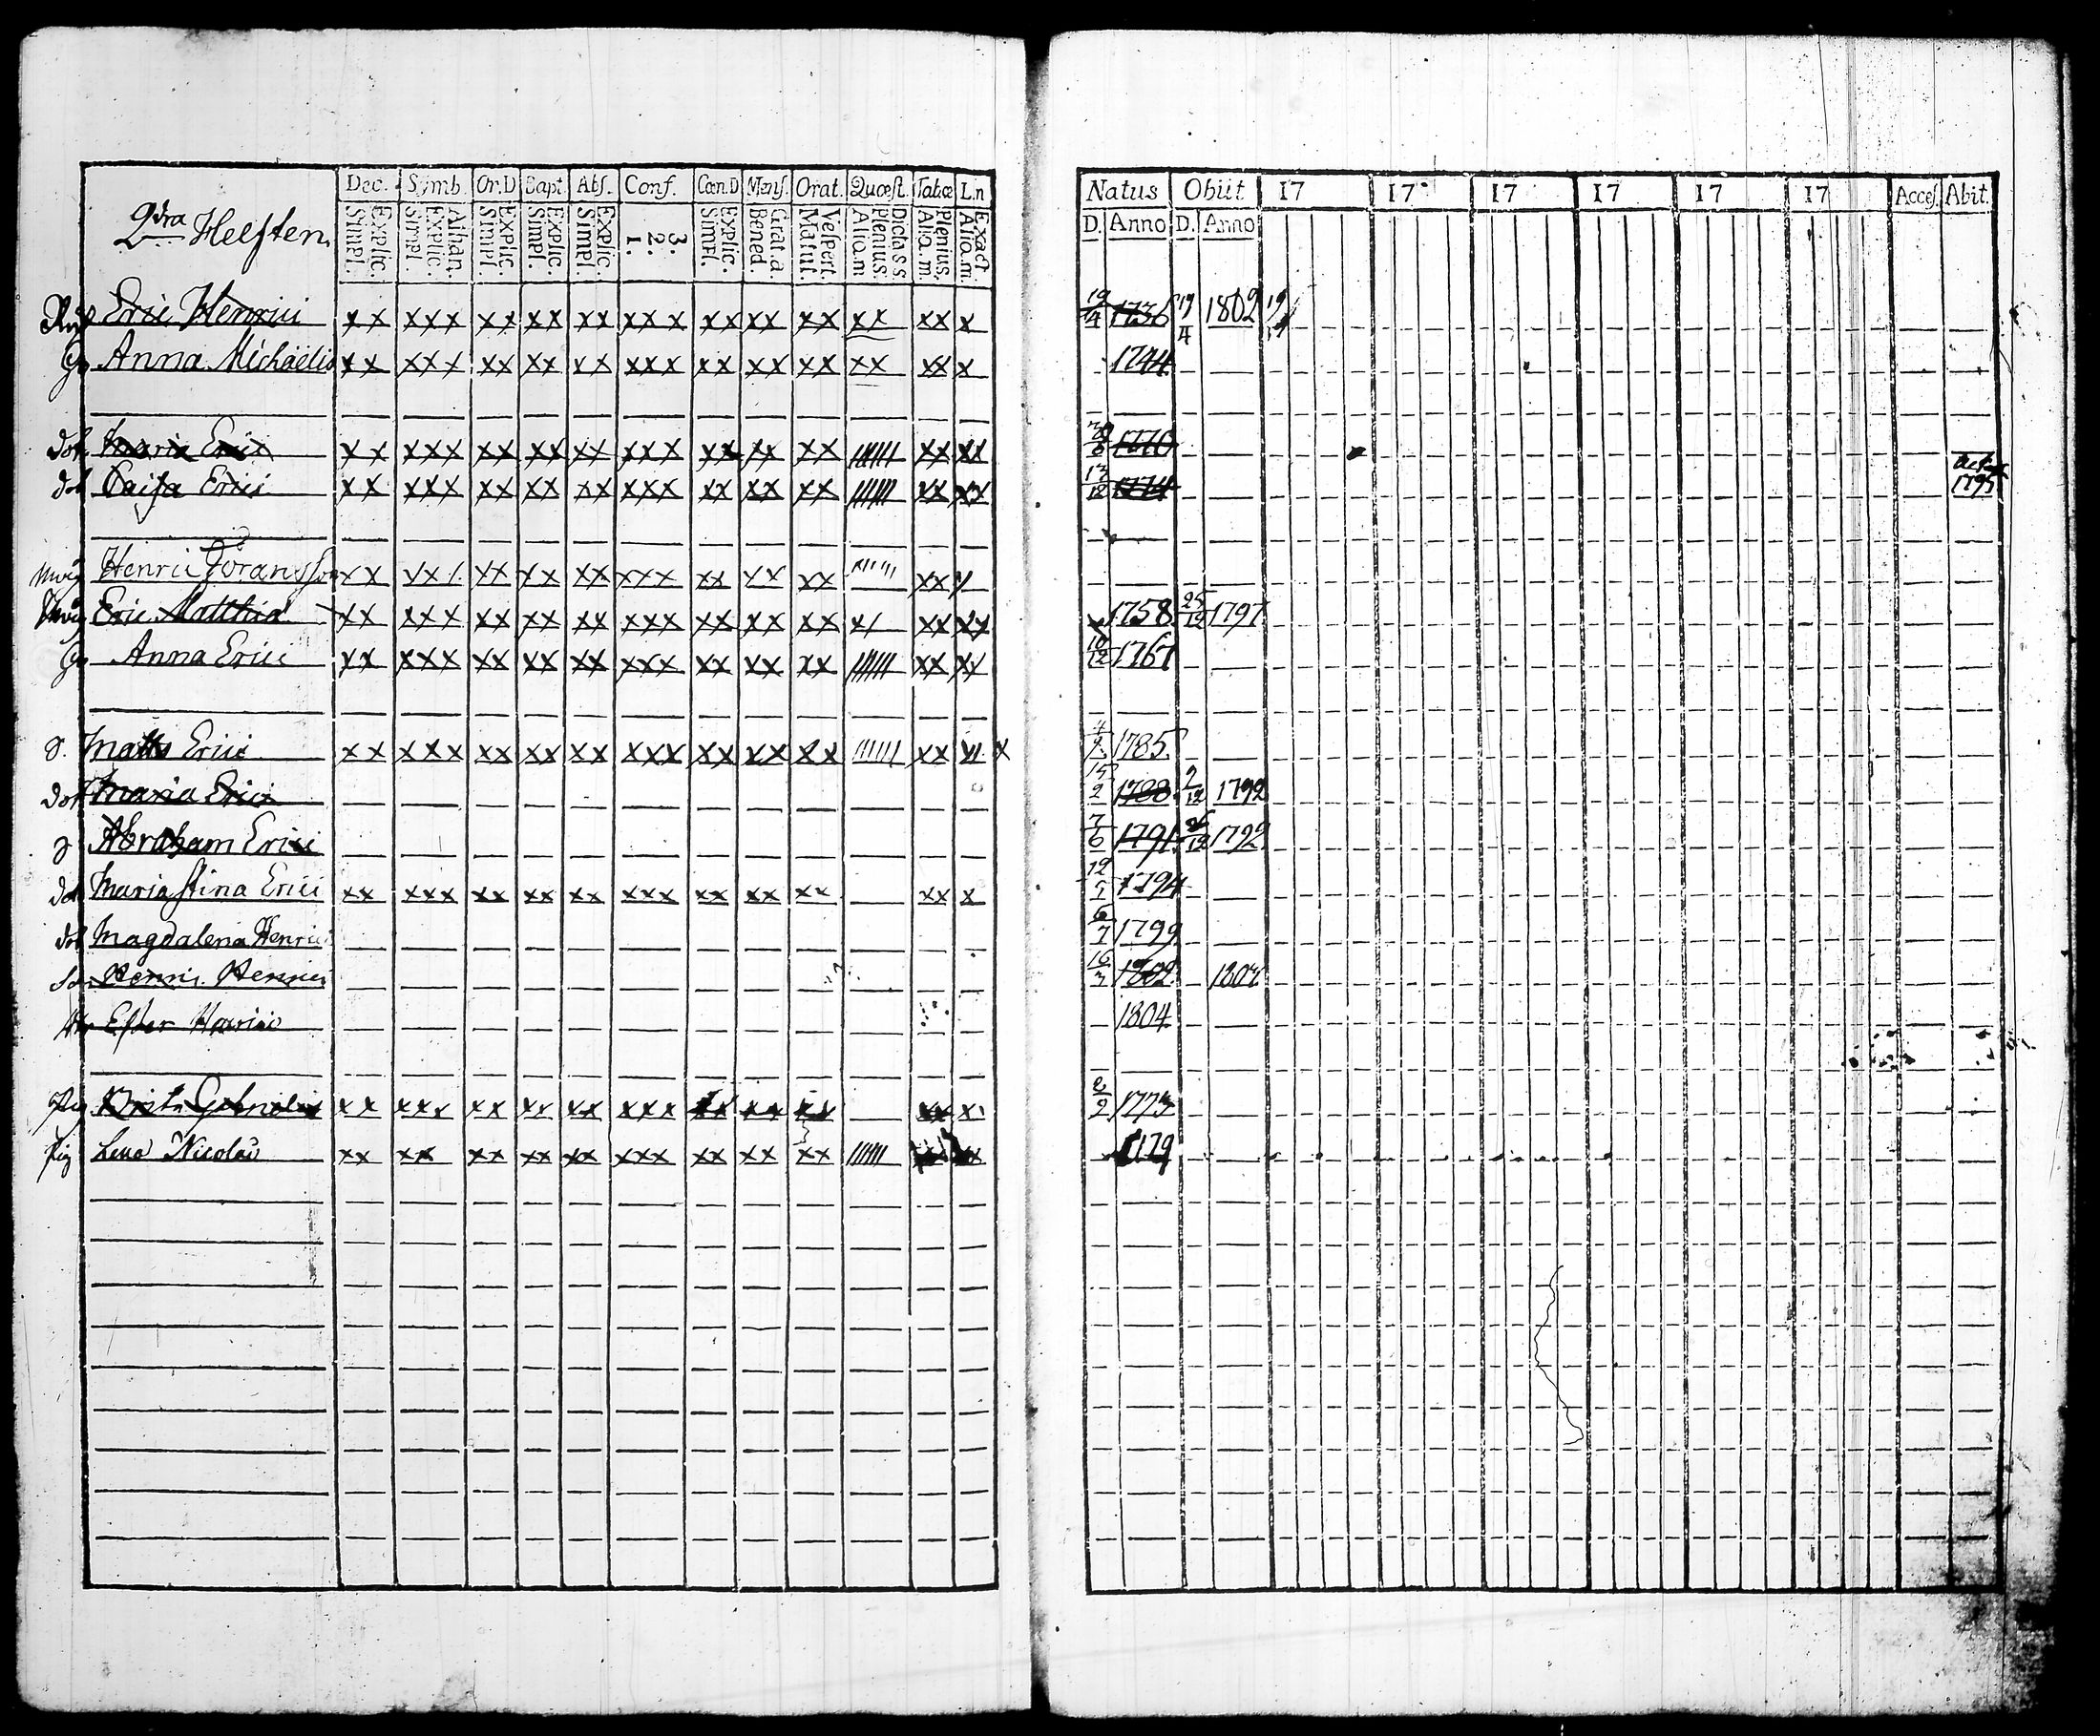 Dec. Symb. Or.D Bapt. Abs. Conf. Cœn.D Mens. Orat. Quæst. Tabœ L.n
Simpl. Explic. Simpl. Explic. Athan. Simpl. Explic. Simpl. Explic. Simpl. Explic. 1. 2. 3. Simpl. Explic. Bened. Grat.a Matut. Vespert. Aliq.m Plenius. Dicta s s Aliq.m. Plenius. Aliq.m. Exact
2dra Helften
Natus Obiit 17 17 17 17 17 17 Acces. Abit.
D. Anno D. Anno
Eric Henrici xx xxx xx xx xx xxx xx xx xx xx xx x 19/4 1736 19/4 1802
Anna Michaelis xx xxx xx xx xx xxx xx xx xx xx xx x 1744
dot. Maria Erici xx xxx xx xx xx xxx xx xx xx |||||| xx xx 1770
dot Caisa Erici xx xxx xx xx xx xxx xx xx xx |||||| xx xx 1774
Henric Göransson xx xxx xx xx xx xxx xx xx xx |||||| xx x
Eric Matthiæ xx xxx xx xx xx xxx xx xx xx xx xx xx 1758 25/12 1797
Anna Erici xx xxx xx xx xx xxx xx xx xx |||||| xx xx 10/12 1767
S. Matts Erici xx xxx xx xx xx xxx xx xx xx |||||| xx xx x 1785
dot Maria Erici 1788 2/12 1792
S Abraham Erici 7/6 1791 1792
dot Maria Stina Erici xx xxx xx xx xx xxx xx xx xx xx x 1794
dot Magdalena Henrici 6/7 1799
So Henric Henrici 16/3 1802
Ester Henrici 1804
Pig xx xxx xx xx xx xxx xx xx xx xx xx 1773
Pig Lena Nicolai xx xx xx xx xx xxx xx xx xx ||||||